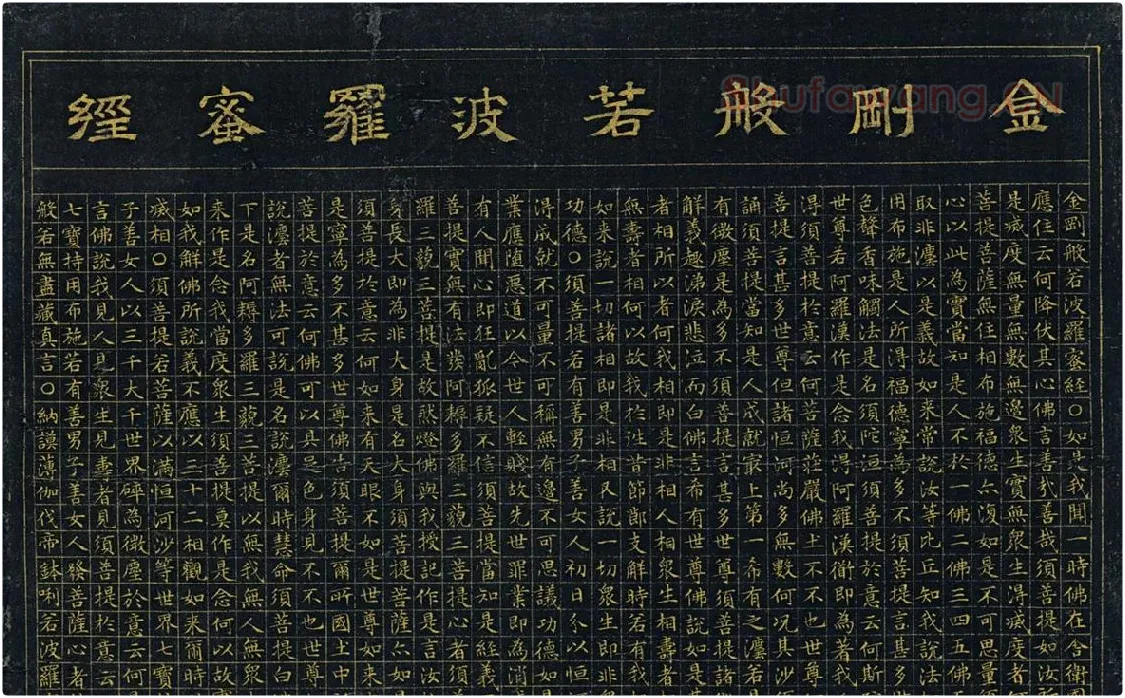 金剛般若波羅蜜經
Shufawang.CN
金剛般若波羅蜜經〇如是我聞一時佛在舍衛
應住云何降伏其心佛言善哉善哉須菩提如汝
是滅度無量無數無邊眾生實無眾生得滅度者
菩提菩薩無住相布施福德亦復如是不可思量
心以此為實當知是人不於一佛二佛三四五佛
取非灋以是義故如來常說汝等比丘知我說法
用布施是人所得福德寧為多不須菩提言甚多
色聲香味觸法是名須陀洹須菩提於意云何斯
世尊若阿羅漢作是念我得阿羅漢衜即為著我
得須菩提於意云何菩薩莊嚴佛土不不也世尊
菩提言甚多世尊但諸恒河尚多無數何況其沙
誦須菩提當知是人成就最上第一希有之灋若
有微塵是為多不須菩提言甚多世尊須菩提諸
解義趣涕淚悲泣而白佛言希有世尊佛說如是
者相所以者何我相即是非相人相眾生相壽者
無壽者相何以故我於往昔節節支解時若有我
如来說一切諸相即是非相又說一切眾生即非
功德〇須菩提若有善男子善女人初日分以恒
得成就不可量不可稱無有邊不可思議功德如
業應墮惡道以今世人輕賤故先世罪業即為消
有人聞心即狂亂狐疑不信須菩提當知是經義
菩提實無有法發阿耨多羅三藐三菩提心者須
羅三藐三菩提是故然燈佛與我授記作是言汝
身長大即為非大身是名大身須菩提菩薩亦如
須菩提於意云何如来有天眼不如是世尊如来
是寧為多不甚多世尊佛告須菩提爾所國土中
菩提於意云何佛可以具足色身見不不也世尊
說灋者無法可說是名說灋爾時慧命須菩提白
下是名阿耨多羅三藐三菩提以無我無人無眾
来作是念我當度眾生須菩提莫作是念何以故
如我解佛所說義不應以三十二相觀如来爾時
滅相〇須菩提若菩薩以滿恒河沙等世界七寶
子善女人以三千大千世界碎為微塵於意云何
言佛說我見人見眾生見壽者見須菩提於意云
七寶持用布施若有善男子善女人發菩薩心者
般若無盡藏真言〇納謨薄伽伐帝鉢唎若波羅